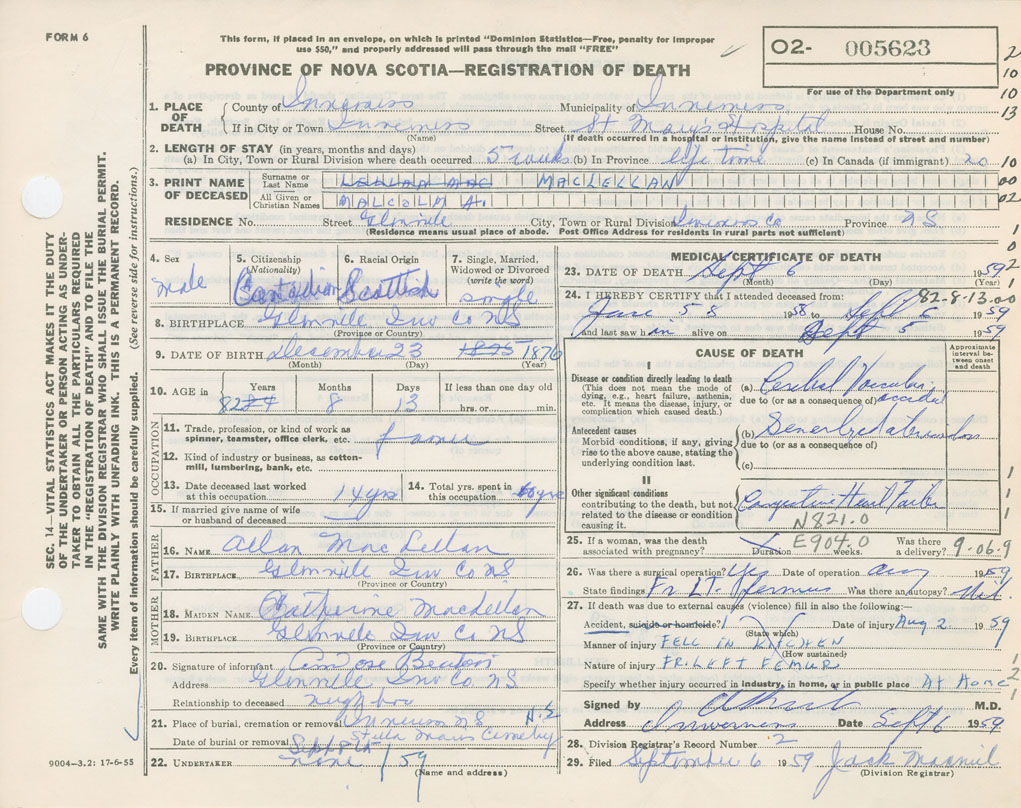 FORM 6
This form, if placed in an envelope, on which is printed "Dominion Statistics—Free, penalty for improper
use $50," and properly addressed will pass through the mail "FREE"
02- 005623
For use of the Department only
PROVINCE OF NOVA SCOTIA—REGISTRATION OF DEATH
SEC. 14—VITAL STATISTICS ACT MAKES IT THE DUTY
OF THE UNDERTAKER OR PERSON ACTING AS UNDER-
TAKER TO OBTAIN ALL THE PARTICULARS REQUIRED
IN THE "REGISTRATION OF DEATH" AND TO FILE THE
SAME WITH THE DIVISION REGISTRAR WHO SHALL ISSUE THE BURIAL PERMIT.
WRITE PLAINLY WITH UNFADING INK. THIS IS A PERMANENT RECORD.
Every item of information should be carefully supplied. (See reverse side for instructions.)
1. PLACE OF DEATH
County of Inverness Municipality of Inverness
If in City or Town Inverness Street St Mary's Hospital House No.
(Name) (If death occurred in a hospital or institution, give the name instead of street and number)
2. LENGTH OF STAY (in years, months and days)
(a) In City, Town or Rural Division where death occurred 5 weeks (b) In Province life time (c) In Canada (if immigrant)
3. PRINT NAME OF DECEASED
Surname or Last Name MACLELLAN
All Given or Christian Names MALCOLM A.
RESIDENCE No. Street Glenville City, Town or Rural Division Inverness Co Province NS
(Residence means usual place of abode. Post Office Address for residents in rural parts not sufficient)
4. Sex male
5. Citizenship (Nationality) Canadian
6. Racial Origin Scottish
7. Single, Married, Widowed or Divorced (write the word) single
8. BIRTHPLACE Glenville Inv Co NS
(Province or Country)
9. DATE OF BIRTH December 23 1875 1876
(Month) (Day) (Year)
10. AGE in Years Months Days If less than one day old
82 84 8 13 hrs. or min.
OCCUPATION
11. Trade, profession, or kind of work as
spinner, teamster, office clerk, etc. farmer
12. Kind of industry or business, as cotton-
mill, lumbering, bank, etc.
13. Date deceased last worked
at this occupation 14 yrs
14. Total yrs. spent in
this occupation 60 yrs
15. If married give name of wife
or husband of deceased
FATHER
16. NAME Allan MacLellan
17. BIRTHPLACE Glenville Inv Co NS
(Province or Country)
MOTHER
18. MAIDEN NAME Catherine MacLellan
19. BIRTHPLACE Glenville Inv Co NS
(Province or Country)
20. Signature of informant Beaton
Address Glenville Inv Co NS
Relationship to deceased neighbor
21. Place of burial, cremation or removal Inverness NS
Stella Maris Cemetery
Date of burial or removal Sept 8th /59
22. UNDERTAKER none
(Name and address)
9004—3.2: 17-6-55
MEDICAL CERTIFICATE OF DEATH
23. DATE OF DEATH Sept 6 1959
(Month) (Day) (Year)
82-8-13-00
24. I HEREBY CERTIFY that I attended deceased from:
June 58 1958 to Sept 6 1959
and last saw him alive on Sept 5 1959
CAUSE OF DEATH
Approximate interval between onset and death
I
Disease or condition directly leading to death
(This does not mean the mode of
dying, e.g., heart failure, asthenia,
etc. It means the disease, injury, or
complication which caused death.)
(a) Cerebral Vascular accident
due to (or as a consequence of)
Antecedent causes
Morbid conditions, if any, giving
rise to the above cause, stating the
underlying condition last.
(b)
due to (or as a consequence of)
(c)
II
Other significant conditions
contributing to the death, but not
related to the disease or condition
causing it.
Congestive Heart Failure
N821.0
E904.0
25. If a woman, was the death
associated with pregnancy? Duration weeks. Was there
a delivery? 9-06.9
26. Was there a surgical operation? Yes Date of operation Aug 1959
State findings Fr LT. Femur Was there an autopsy?
27. If death was due to external causes (violence) fill in also the following:
Accident, suicide or homicide? Date of injury Aug 2 1959
(State which)
Manner of injury FELL IN KITCHEN
(How sustained)
Nature of injury FR. LEFT FEMUR
Specify whether injury occurred in industry, in home, or in public place At Home
Signed by M.D.
Address Inverness Date Sept 6 1959
28. Division Registrar's Record Number 2
29. Filed September 6 1959 Jack
(Division Registrar)